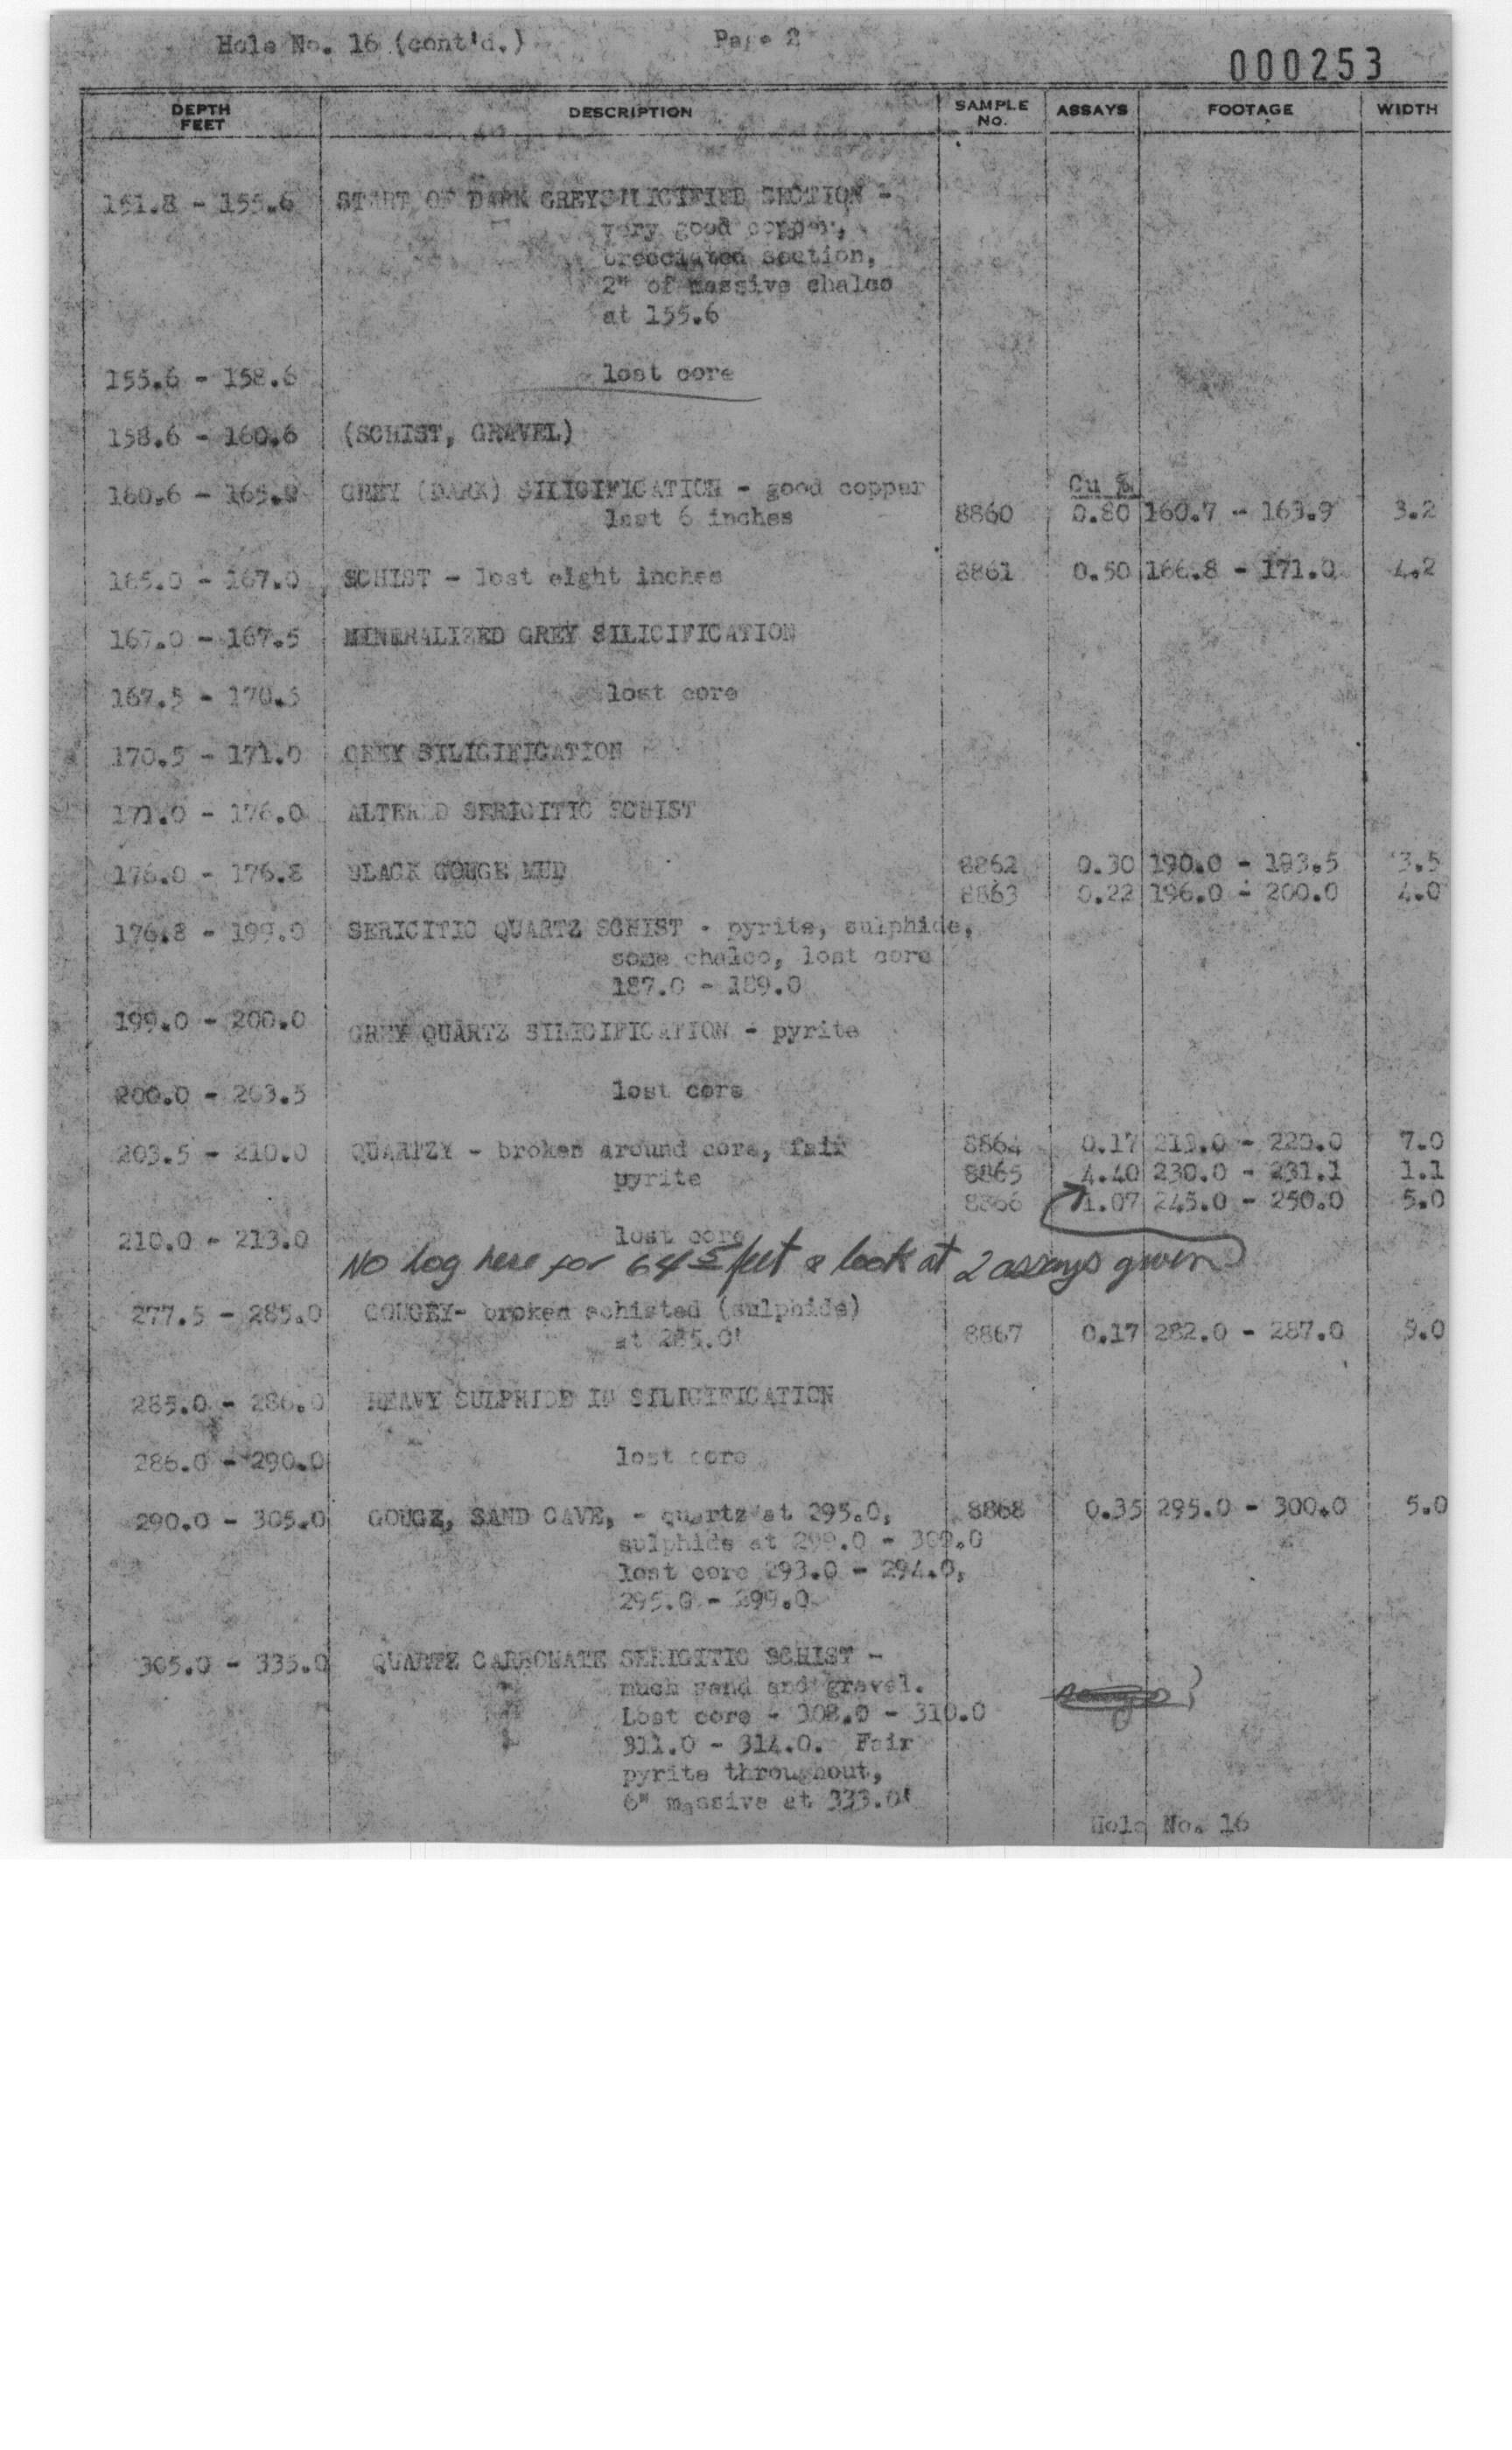 Hole No. 16 (cont'd.) Page 2
000253
DEPTH FEET DESCRIPTION SAMPLE No. ASSAYS FOOTAGE WIDTH
151.8 - 155.6 START OF DARK GREYSILICIFIED SECTION -
very good copper,
brecciated section,
2" of massive chalco
at 155.6
155.6 - 158.6 lost core
158.6 - 160.6 (SCHIST, GRAVEL)
Cu %
160.6 - 165.0 GREY (DARK) SILICIFICATION - good copper
last 6 inches 8860 0.80 160.7 - 163.9 3.2
165.0 - 167.0 SCHIST - lost eight inches 8861 0.50 166.8 - 171.0 4.2
167.0 - 167.5 MINERALIZED GREY SILICIFICATION
167.5 - 170.5 lost core
170.5 - 171.0 GREY SILICIFICATION
171.0 - 176.0 ALTERED SERICITIC SCHIST
176.0 - 176.8 BLACK GOUGE MUD 8862 0.30 190.0 - 193.5 3.5
8863 0.22 196.0 - 200.0 4.0
176.8 - 199.0 SERICITIC QUARTZ SCHIST - pyrite, sulphide,
some chalco, lost core
187.0 - 189.0
199.0 - 200.0 GREY QUARTZ SILICIFICATION - pyrite
200.0 - 203.5 lost core
203.5 - 210.0 QUARTZY - broken around core, fair 8864 0.17 213.0 - 220.0 7.0
pyrite 8865 4.40 230.0 - 231.1 1.1
8866 1.07 245.0 - 250.0 5.0
210.0 - 213.0 lost core
No Log here for 64.5 feet & look at 2 assays given
277.5 - 285.0 GOUGEY- broken schisted (sulphide)
at 285.0' 8867 0.17 282.0 - 287.0 5.0
285.0 - 286.0 HEAVY SULPHIDE IN SILICIFICATION
286.0 - 290.0 lost core
290.0 - 305.0 GOUGE, SAND CAVE, - quartz at 295.0, 8868 0.35 295.0 - 300.0 5.0
sulphide at 299.0 - 300.0
lost core 293.0 - 294.0,
295.0 - 299.0
305.0 - 335.0 QUARTZ CARBONATE SERICITIC SCHIST -
much sand and gravel.
Lost core - 308.0 - 310.0
311.0 - 314.0. Fair
pyrite throughout,
6" massive at 333.0'
Hole No. 16